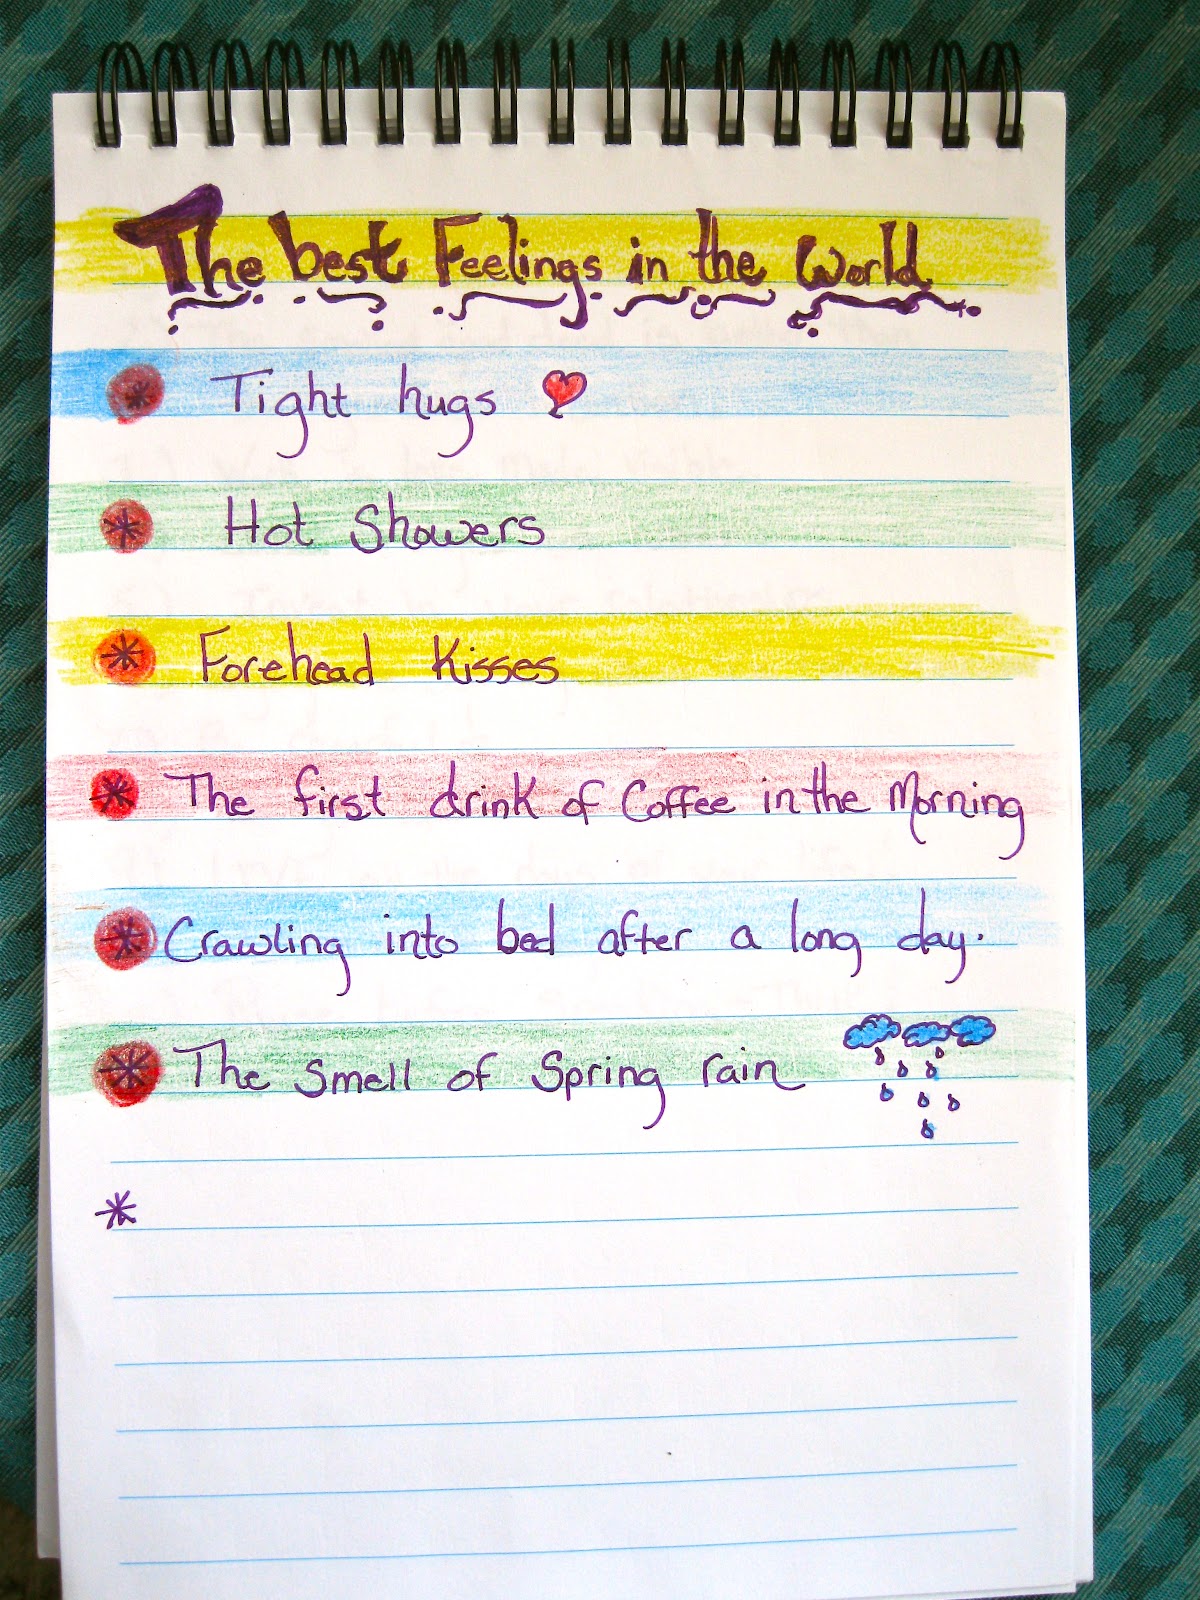 The best Feelings in the World
* Tight hugs
* Hot Showers
* Forehead Kisses
* The first drink of Coffee in the Morning
* Crawling into bed after a long day.
* The Smell of Spring rain
*